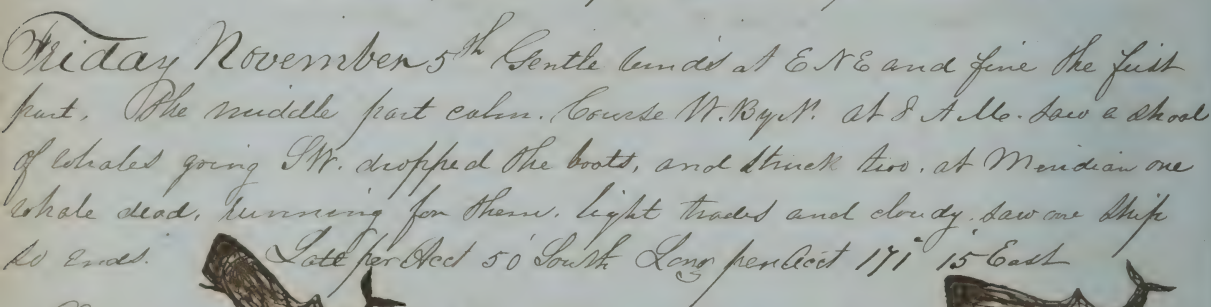 Friday November 5th Gentle winds at E N E and fine the first
part. The middle part calm. Course W. By N. at 8 A.M. saw a shoal
of whales going SW. dropped the boats, and struck two. at Meridian one
whale dead, running for them. light trades and cloudy. saw one ship
so ends. Latt per Acct 50' South Long per Acct 171° 15 East